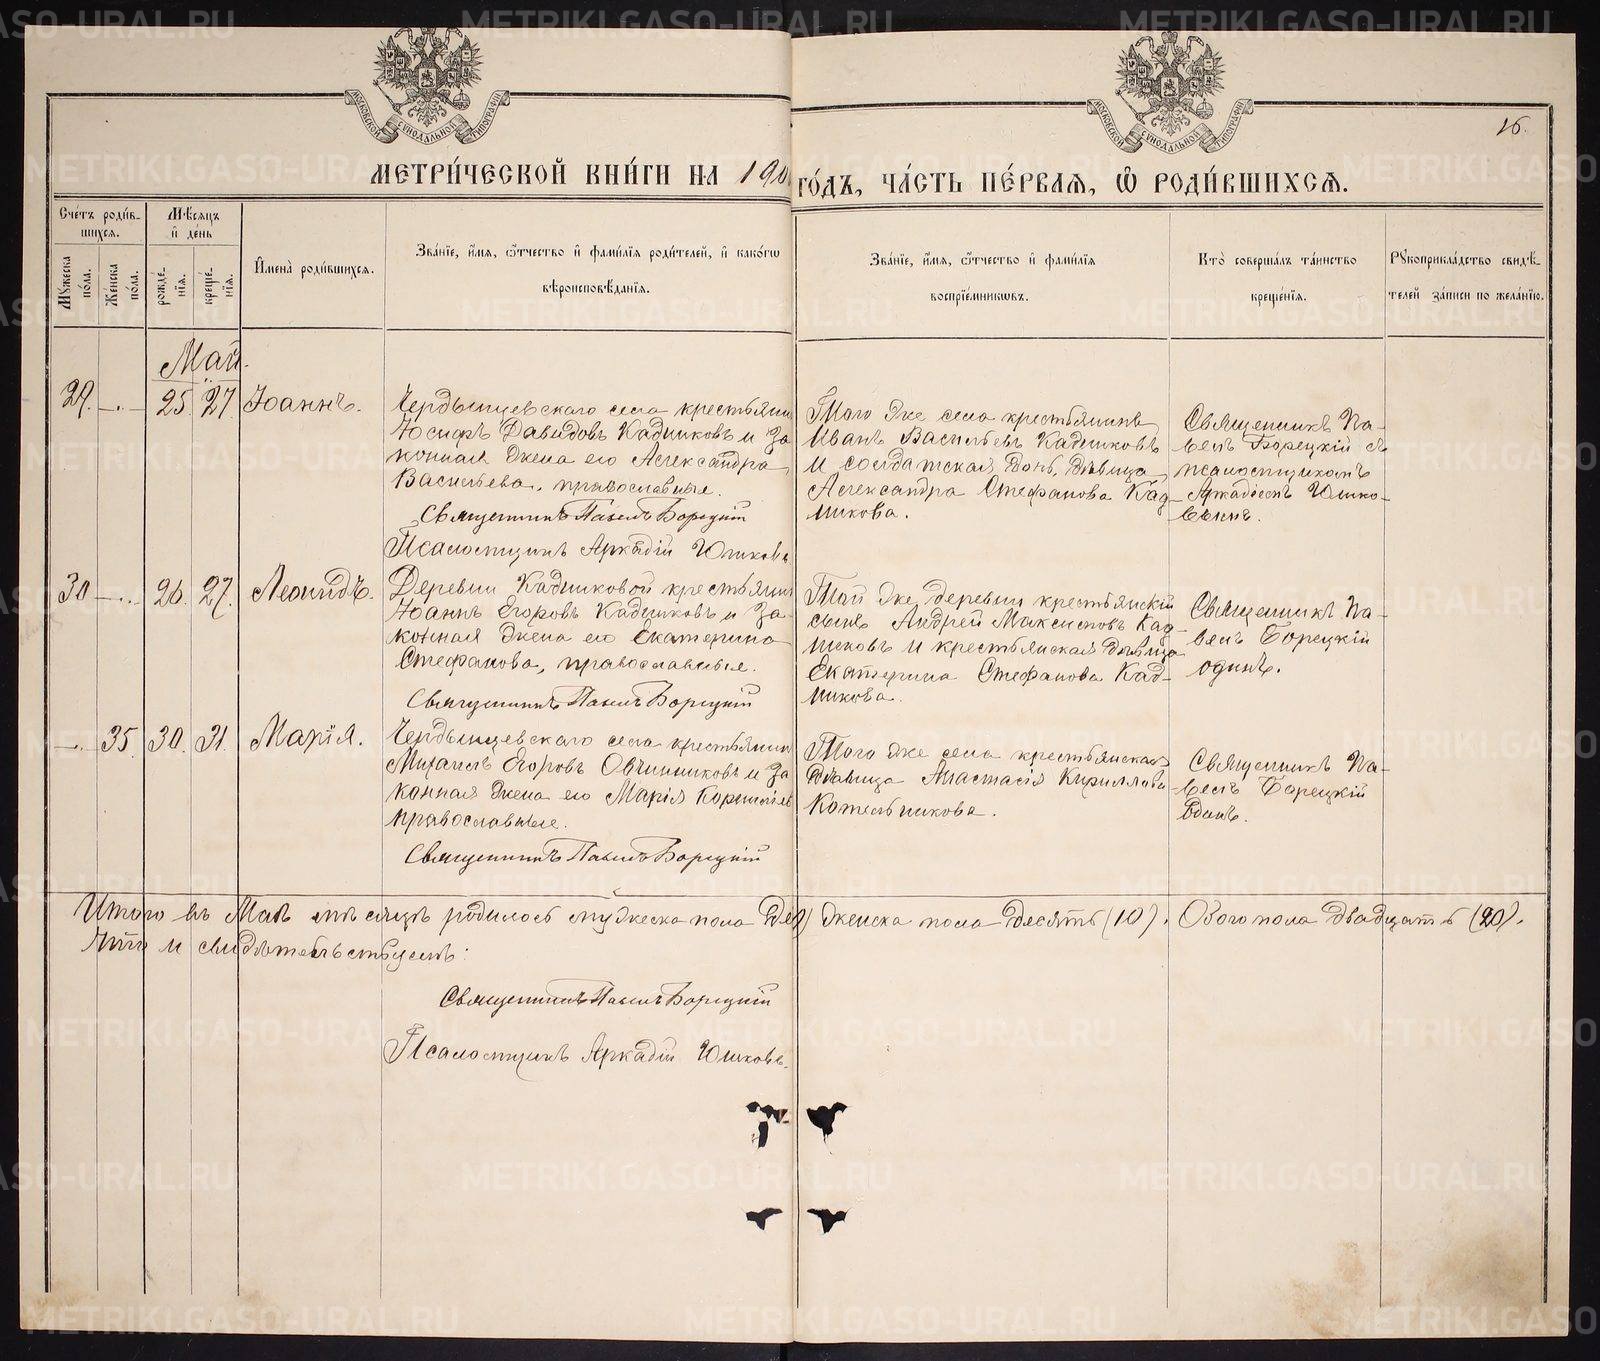 МОСКОВСКОЙ СУНОДАЛЬНОЙ ТИПОГРАФІИ
МОСКОВСКОЙ СУНОДАЛЬНОЙ ТИПОГРАФІИ
16.
МЕТРИ́ЧЕСКОЙ КНИ́ГИ НА 190
ГО́ДЪ, ЧА́СТЬ ПЕ́РВАЯ, Ѡ РОДИ́ВШИХСЯ.
Сче́тъ роди́в-
шихся.
Мѣ́сяцъ
и҆ де́нь
Му́жеска
по́ла.
Же́нска
по́ла.
рожде́-
нїя.
креще́-
нїя.
И҆мена̀ роди́вшихся.
Зва́нїе, и҆́мя, ѻ҆́тчество и҆ фами́лїя роди́телей, и҆ како́гѡ
вѣроисповѣ́данїя.
Зва́нїе, и҆́мя, ѻ҆́тчество и҆ фами́лїя
воспрїе́мникѡвъ.
Кто̀ соверша́лъ та́инство
креще́нїя.
Рꙋкоприкла́дство свидѣ́-
телей за́писи по жела́нїю.
Май.
29. —. 25. 27. Іоаннъ.
Чердынцевскаго села крестьянин
Іосифъ Давидовъ Кадниковъ и за
конная жена его Александра
Васильева, православные.
Священникъ Павелъ Борецкій
Псаломщикъ Аркадій Юшковъ
Того же села крестьянинъ
Иванъ Васильевъ Кадниковъ
и солдатская дочь, дѣвица
Александра Стефанова Кад-
никова.
Священникъ Па-
велъ Борецкій съ
псаломщикомъ
Аркадіемъ Юшко-
вымъ.
30 —.. 26. 27. Леонидъ.
Деревни Кадниковой крестьянин
Іоаннъ Егоровъ Кадниковъ и за-
конная жена его Екатерина
Стефанова, православные.
Священникъ Павелъ Борецкій
Той же деревни крестьянскій
сынъ Андрей Максимовъ Кад-
никовъ и крестьянская дѣвица
Екатерина Стефанова Кад-
никова.
Священникъ Па-
велъ Борецкій
одинъ.
—. 35. 30. 31. Марія.
Чердынцевскаго села крестьянин
Михаилъ Егоровъ Овчинниковъ и за
конная жена его Марія Корнилiев
православные.
Священникъ Павелъ Борецкій
Того же села крестьянская
дѣвица Анастасія Кириллова
Котельникова.
Священникъ Па-
велъ Борецкій
одинъ.
Итого въ Маѣ мѣсяцѣ родилось мужеска пола женска пола десять (10). Обоего пола двадцать (20).
и свидѣтельствуемъ:
Священникъ Павелъ Борецкій
Псаломщикъ Аркадій Юшковъ.
METRIKI.GASO-URAL.RU